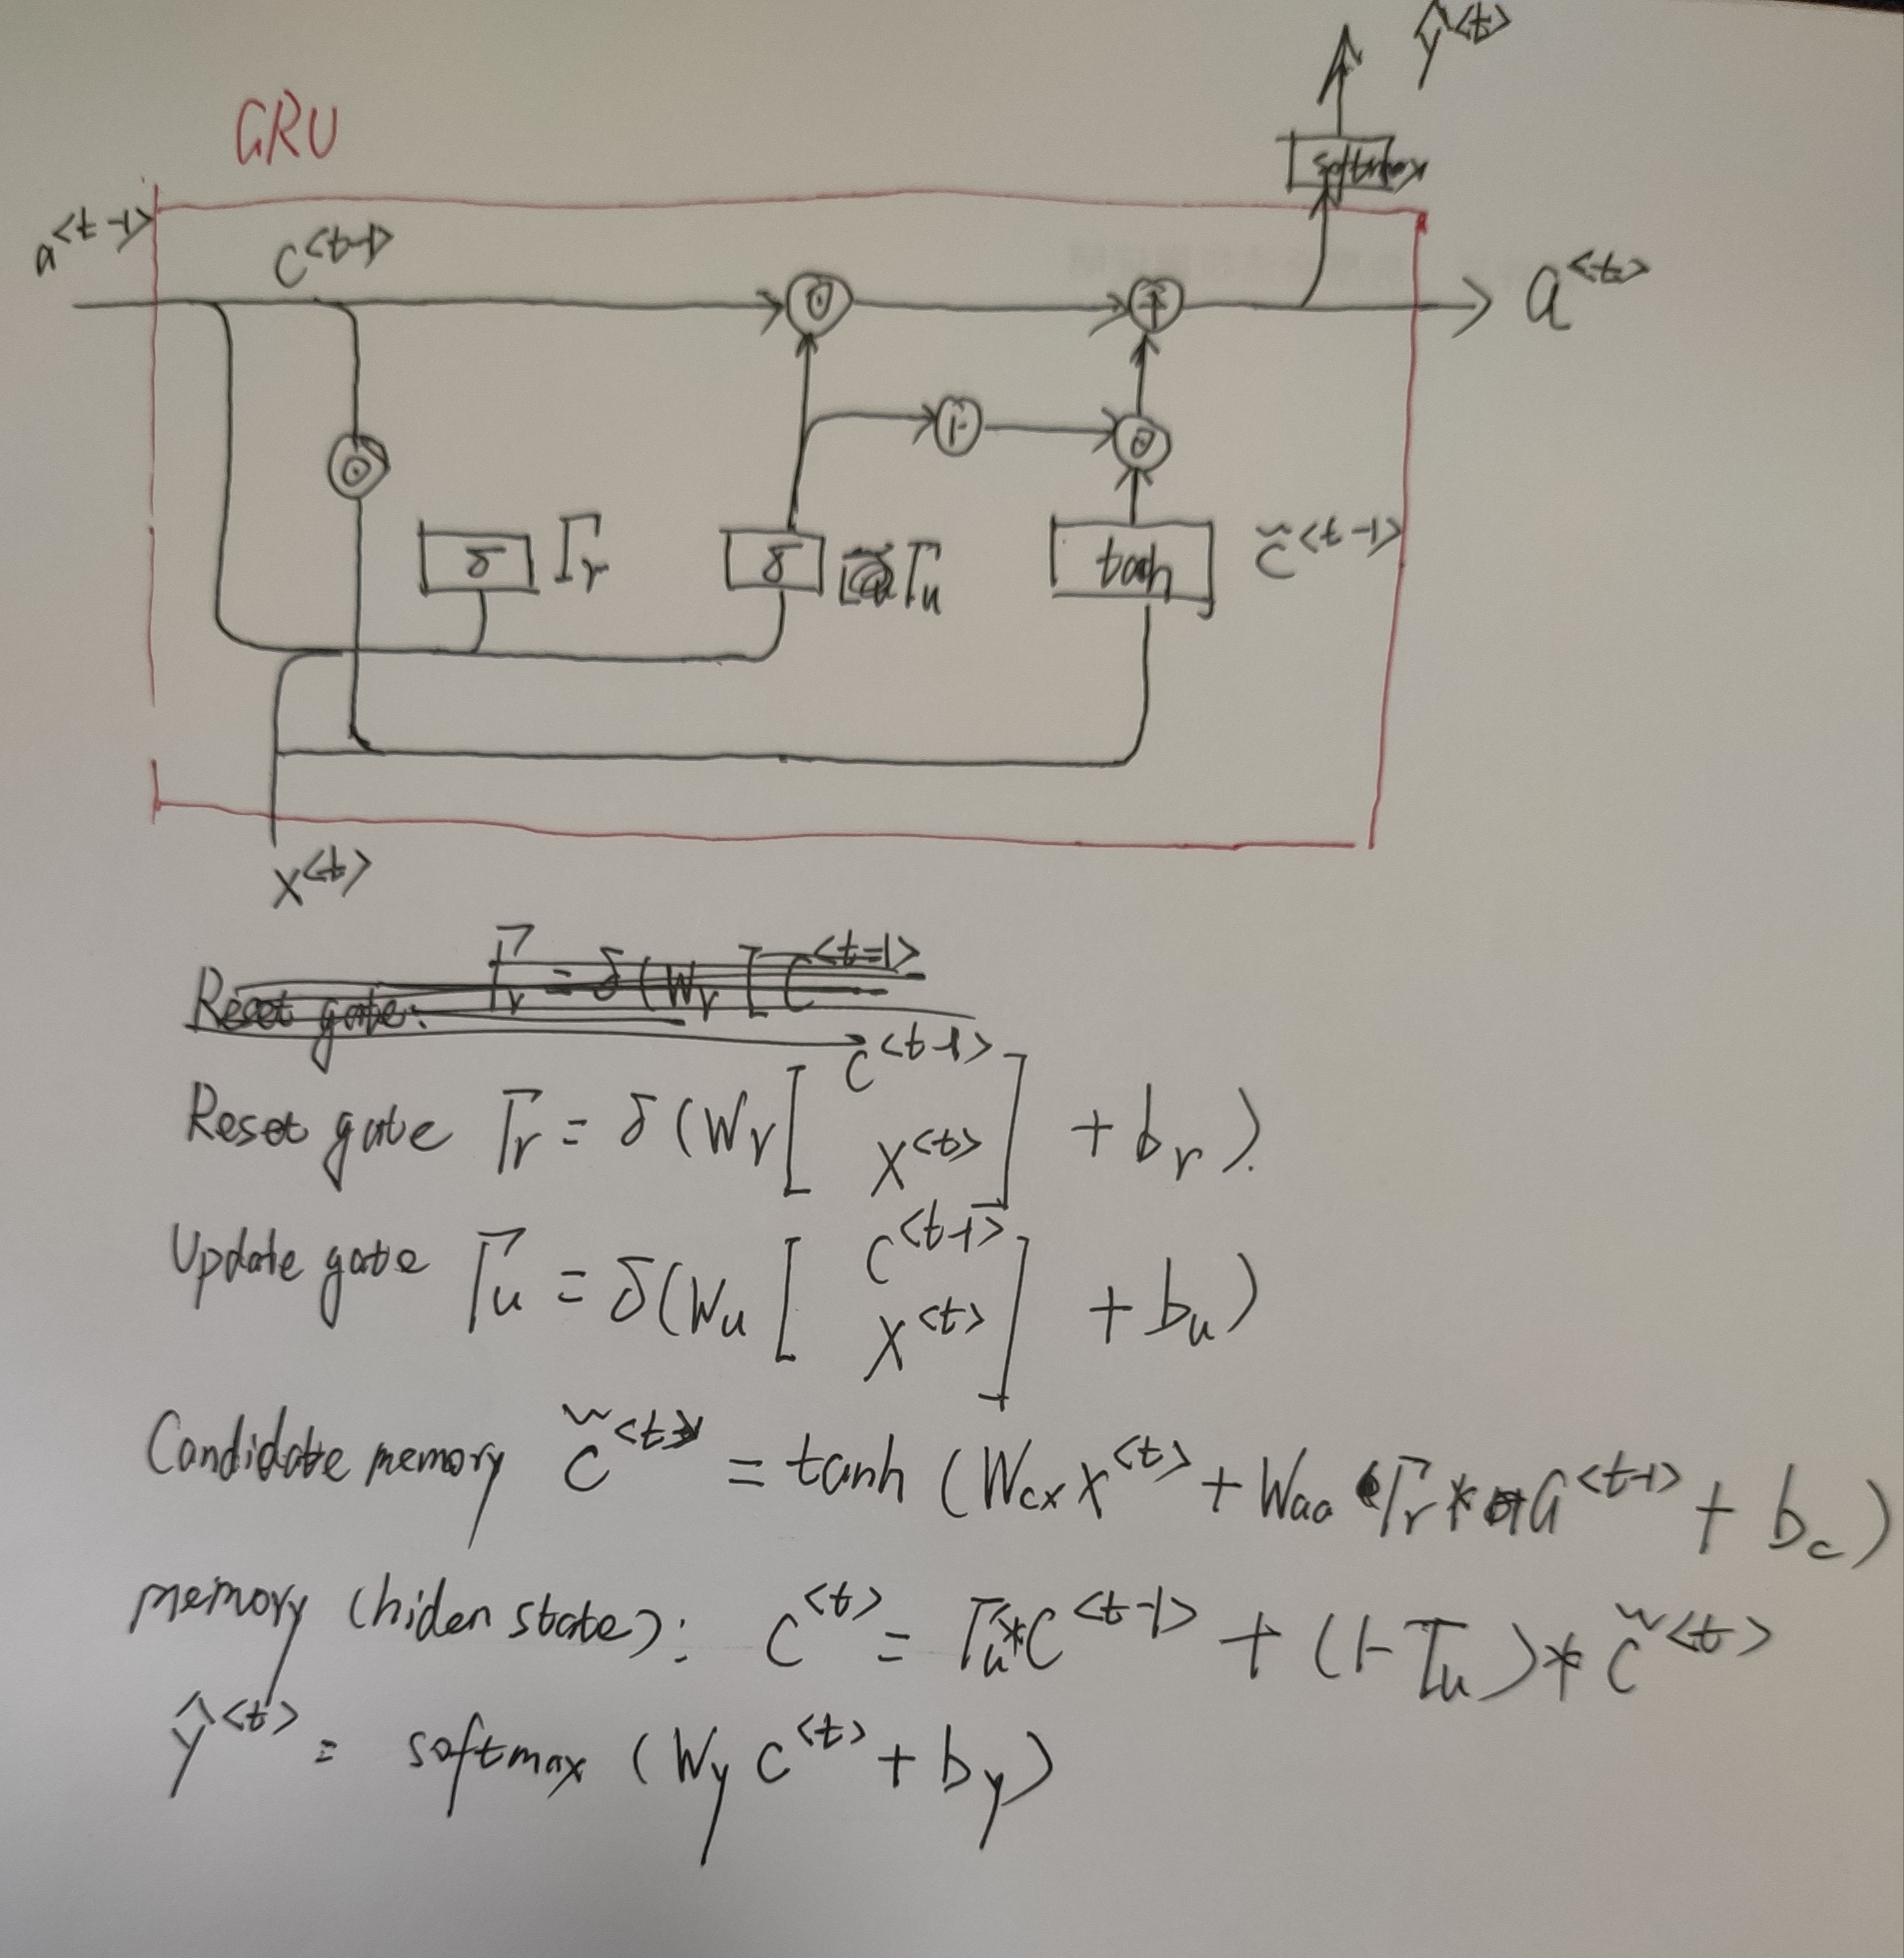 ŷ<t>
softmax
GRU
a<t-1>
c<t-1>
a<t>
1-
δ Γr
δ Γu
tanh
c̃<t-1>
x<t>
Reset gate: Γr = δ(Wr [ C<t-1>
Reset gate Γr = δ(Wr [ c<t-1> x<t> ] + br).
Update gate Γu = δ(Wu [ c<t-1> x<t> ] + bu)
Candidate memory c̃<t> = tanh (Wcx x<t> + Waa Γr * a<t-1> + bc)
memory (hiden state): c<t> = Γu * c<t-1> + (1-Γu) * c̃<t>
ŷ<t> = softmax (Wy c<t> + by)